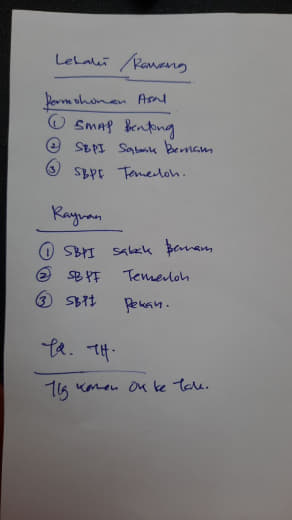 Lelaki / Rawang
Permohonan Asal
① SMAP Bentong
② SBPI Sabak Bernam
③ SBPI Temerloh.
Rayuan
① SBPI Sabak Bernam
② SBPI Temerloh
③ SBPI Pekan.
TQ. TH.
Tlg komen OK ke tak.